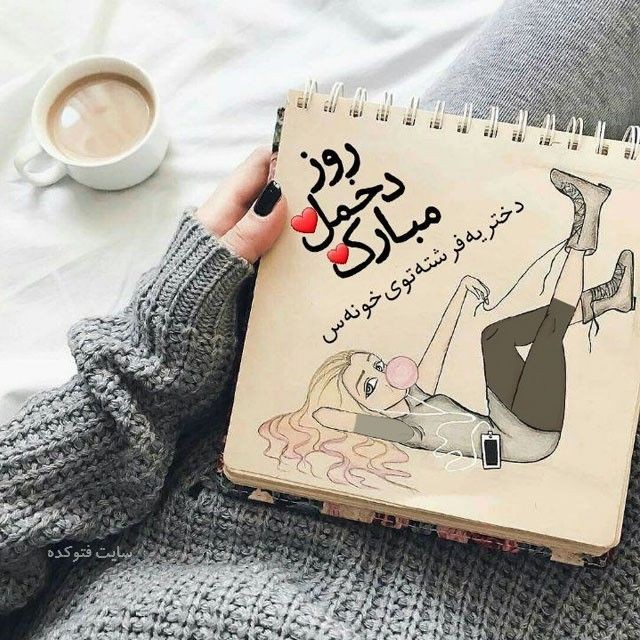 روز
دخمل
مبارک
دختر یه فرشته توی خونه س
سایت فتوکده